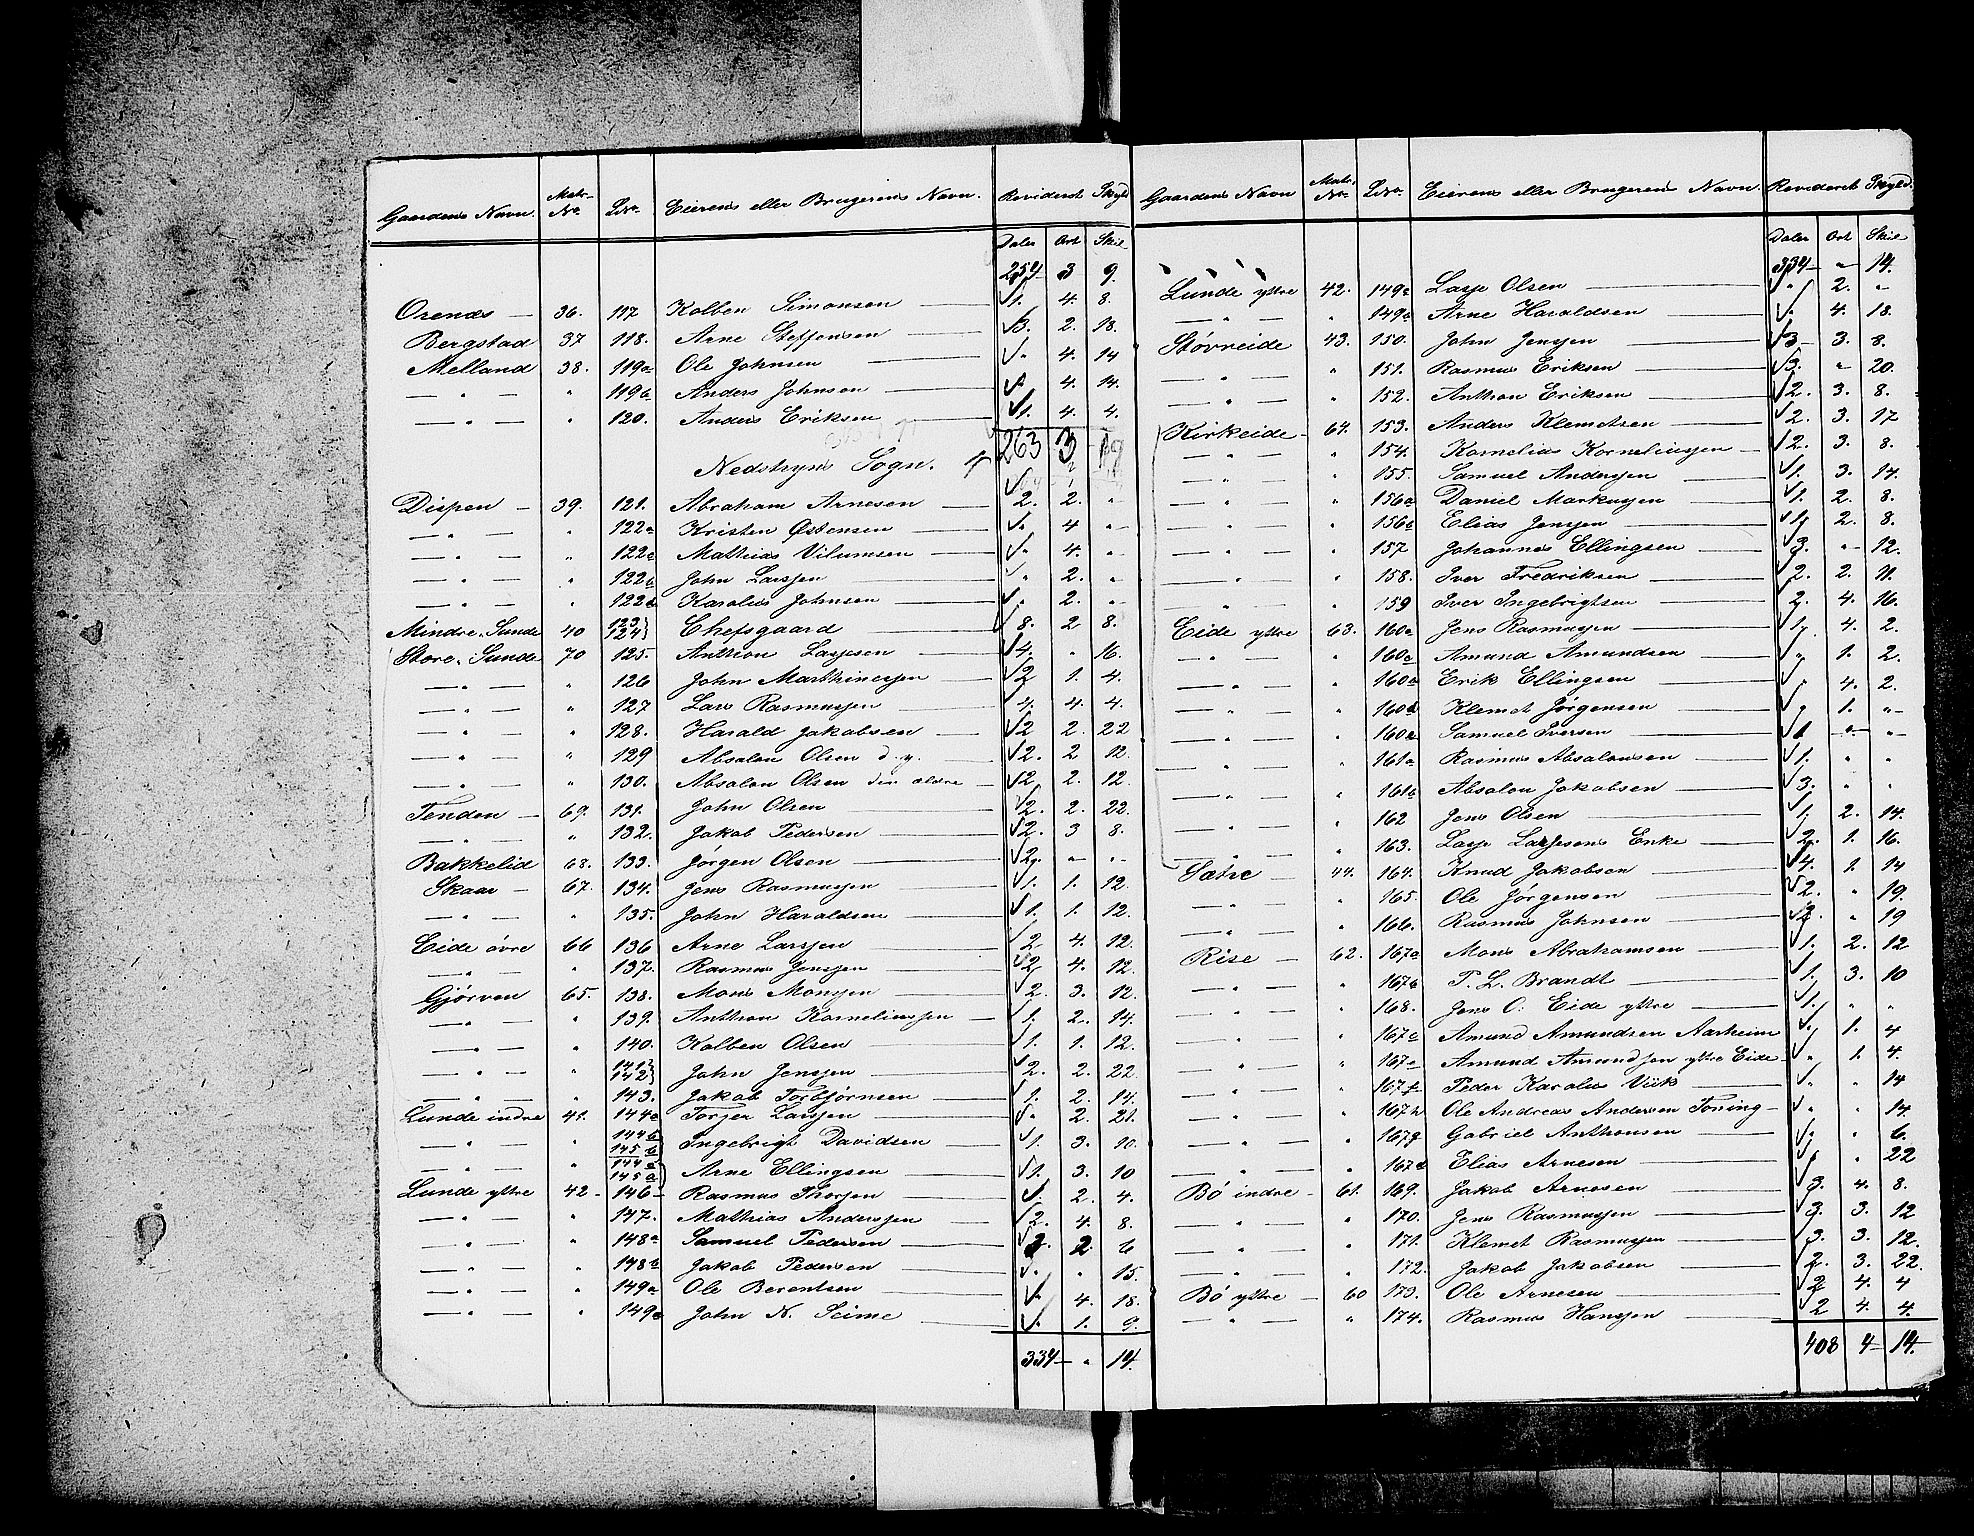 Gaardens Navn. Matr. No. LNo. Eierens eller Brugerens Navn. Revideret Skyld
Daler Ort Skil
254 3 9.
Orenæs — 36. 117 Kolben Simonsen — 1. 4. 8.
Bergstad 37 118. Arne Steffensen — 3. 2. 18.
Melland 38. 119a Ole Johnsen — " 4. 14
— " — " 119b Anders Johnsen — " 4. 14.
— " — " 120. Anders Eriksen — 1. 4. 4.
263 3 19
Nedstryns Sogn.
Dispen — 39. 121. Abraham Arnesen — 2. 2. "
— " — " 122a Kristen Østensen — " 4 "
— " — " 122 Mathias Vilumsen — " 4. "
— " — " 122 John Larssen — " 2. "
— " — " 122 Karolus Johnsen — " 2. "
Mindre Sunde 40 123 124} Chefsgaard — 8. 2 8.
Store Sunde 70 125. Anthon Lassesen — 4. " 16.
— " — " 126 John Marthinessen — 2 1. 4.
— " — " 127 Lars Rasmussen — 4. 4 4.
— " — " 128. Harald Jakobsen — 2 2. 22
— " — " 129 Absalon Olsen d. y. 2. 2 12.
— " — " 130. Absalon Olsen den ældre — 2 2. 12.
Tenden — 69. 131. John Olsen — 2. 2. 22.
— " — " 132. Jakob Pedersen — 2. 3 8.
Bakkelid 68. 133. Jørgen Olsen — 2. " "
Skaar — 67. 134. Jens Rasmussen — 1. 1. 12.
— " — " 135. John Haraldsen — 1. 1. 12.
Eide øvre 66 136 Arne Larssen — 2 4. 12.
— " — " 137. Rasmus Jenssen — 2. 4. 12.
Gjørven 65. 138. Mons Monssen — 2. 3. 12.
— " — " 139. Anthon Korneliussen — 1. 2. 14.
— " — " 140. Kolben Olsen — 1. 1. 12.
— " — " 141 142} John Jenssen — 2. 2. 22
— " — " 143. Jakob Torbjørnsen — 1. 2. 14.
Lunde indre 41. 144a Torjer Larssen — " 2. 21.
— " — " 144b 145b} Ingebrigt Davidsen — 1. 3. 10.
— " — " 144 145a} Arne Ellingsen — 1. 3. 10
Lunde yttre 42 - 146 Rasmus Thorsen — 1. 2. 4.
— " — " 147. Mathias Anderssen — 2. 4. 8.
— " — " 148a Samuel Pedersen — 2. 2. 6
— " — " 148b Jakob Pedersen — " " 15.
— " — " 149a Ole Berentsen — " 4. 18.
— " — " 149 John N. Seime — " 1. 9.
334 — " 14.
Gaardens Navn Matr. No. LNo. Eierens eller Brugerens Navn. Revideret Skyld.
Daler Ort Skil
334 — " 14.
Lunde yttre 42. 149 Lasse Olsen — " 2. "
— " — " 149 Arne Haraldsen — " 4. 18.
Støvreide 43. 150. John Jenssen — 3 3. 8.
— " — " 151. Rasmus Eriksen — 3. " 20.
— " — " 152. Anthon Eriksen — 2. 3. 8.
Kirkeide — 64. 153. Anders Klemetsen — 2. 3. 17
— " — " 154. Kornelius Korneliussen — 2. 3. 8.
— " — " 155. Samuel Anderssen — 1. 3. 14.
— " — " 156a Daniel Markussen — 1. 2. 8.
— " — " 156b Elias Jenssen — 1. 2. 8.
— " — " 157 Johannes Ellingsen — 3. " 12.
— " — " 158. Iver Fredriksen — 2. 2. 11.
— " — " 159 Iver Ingebrigtsen — 2. 4. 16.
Eide yttre 63. 160a Jens Rasmussen — 1. 4. 2.
— " — " 160c Amund Amundsen — " 1. 2.
— " — " 160 Erik Ellingsen — " 4. 2.
— " — " 160d Klemet Jørgensen — " 1. "
— " — " 160e Samuel Iversen — 1 " "
— " — " 161a Rasmus Absalonsen — 1. " "
— " — " 161b Absalon Jakobsen — 3. " "
— " — " 162 Jens Olsen — 1. 2. 14.
— " — " 163. Lasse Lassesens Enke — 2. 1. 16.
Sætre — 44. 164. Knud Jakobsen — 4. 1. 14
— " — " 165. Ole Jørgensen — 2. " 19.
— " — " 166. Rasmus Johnsen — 2. " 19
Rise — 62. 167a Mons Abrahamsen — 1. 2. 12
— " — " 167b P. L. Brandt — 1. 3. 10
— " — " 168. Jens O. Eide yttre — 1. " "
— " — " 167c Amund Amundsen Aarheim " 1. 4
— " — " 167e Amund Amundsen yttre Eide — " 1. 4.
— " — " 167f Peder Karolus Viik — " " 14
— " — " 167h Ole Andreas Andersen Toning — " " 14
— " — " 167g Gabriel Anthonsen — " " 6.
— " — " 167d Elias Arnesen — " " 22
Bø indre — 61. 169. Jakob Arnesen — 3. 4. 8.
— " — " 170. Jens Rasmussen — 3. 3. 12
— " — " 171. Klemet Rasmussen — 3. 3. 12.
— " — " 172. Jakob Jakobsen — 2. 3. 22.
Bø yttre — 60 173. Ole Arnesen — 2 4. 4
— " — " 174. Rasmus Hanssen — 2 4. 4.
408 4 14.